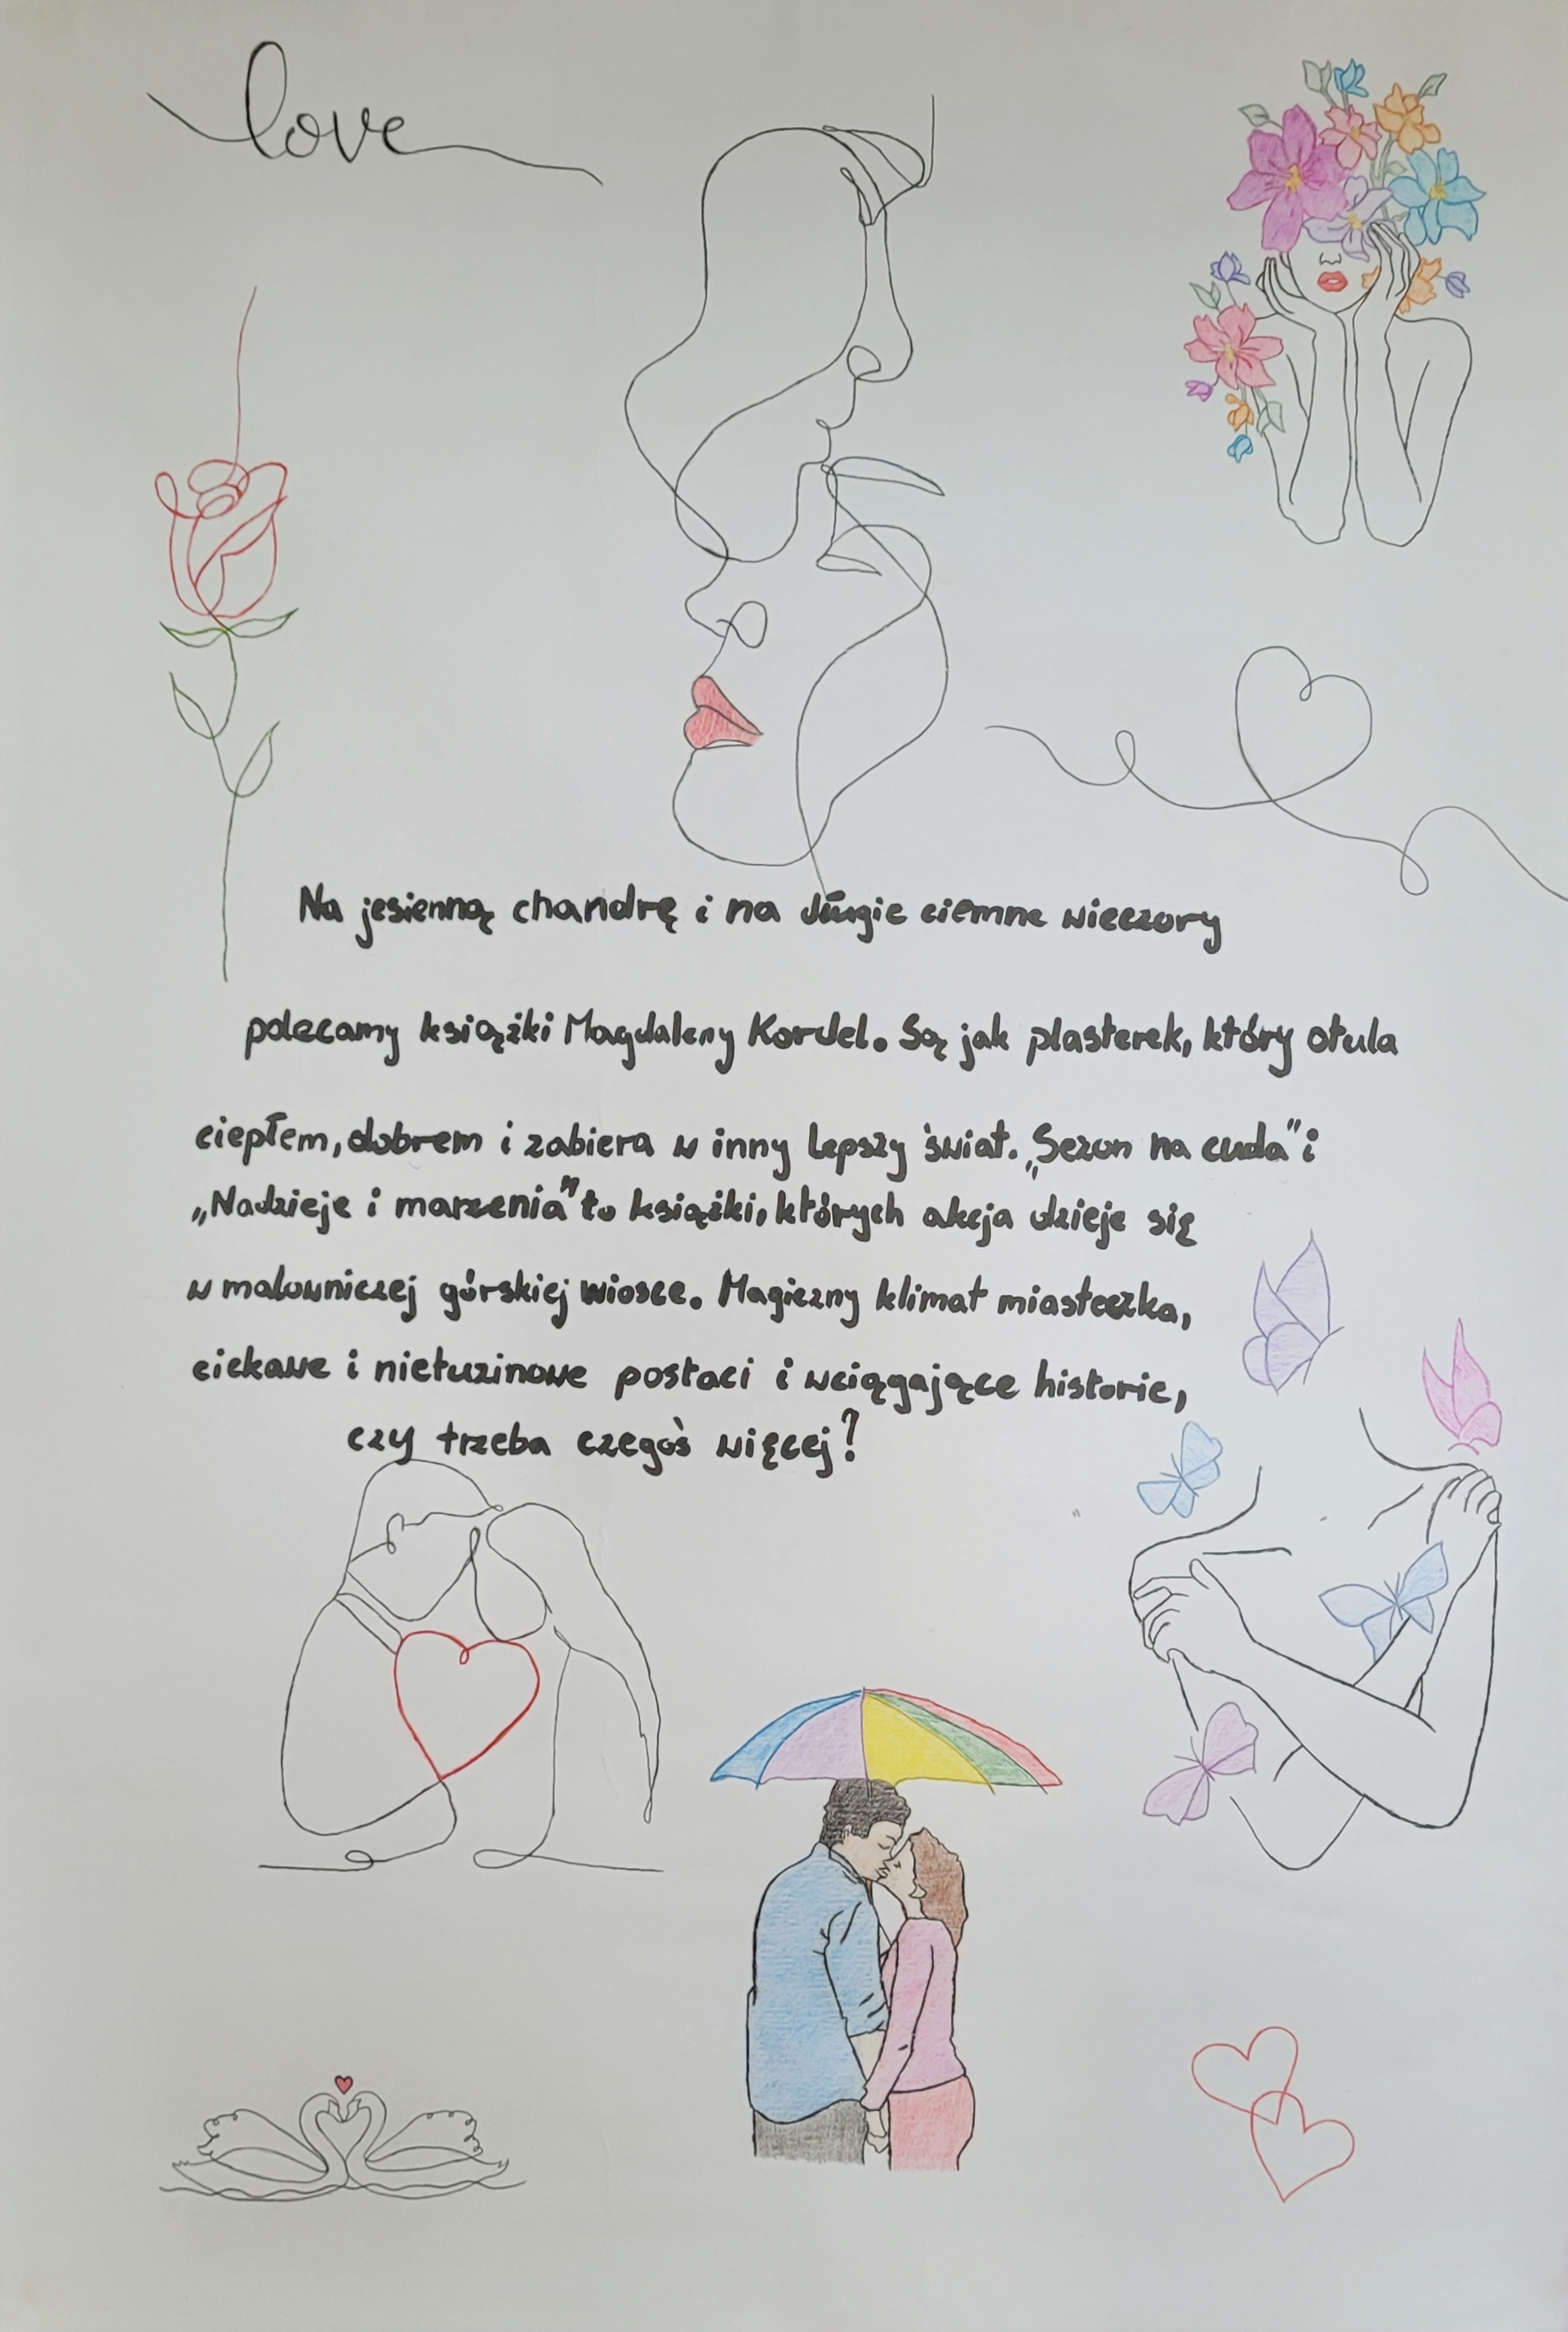 love
Na jesienną chandrę i na długie ciemne wieczory
polecamy książki Magdaleny Kordel. Są jak plasterek, który otula
ciepłem, dobrem i zabiera w inny lepszy świat. „Sezon na cuda" i
„Nadzieje i marzenia" to książki, których akcja dzieje się
w malowniczej górskiej wiosce. Magiczny klimat miasteczka,
ciekawe i nietuzinowe postaci i wciągające historie,
czy trzeba czegoś więcej?